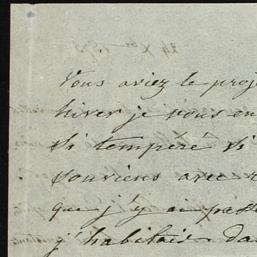 Vous aviez le proj
hiver je vous en
si tempéré si
souviens avec
que j'y ai pass
j'habitais da